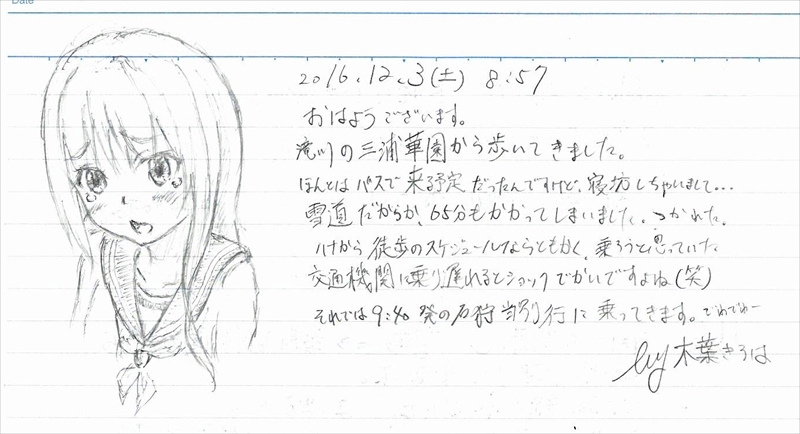 Date
2016.12.3(土) 8:57
おはようございます。
滝川の三浦華園から歩いてきました。
ほんとは バスで来る予定だったんですけど、寝坊しちゃいまして...
雪道だからか、65分もかかってしまいました。つかれた。
ハナから徒歩のスケジュールならともかく、乗ろうと思っていた
交通機関に乗り遅れるとショックでかいですよね(笑)
それでは9:40発の石狩当別行に乗ってきます。でわでわー
by 木葉きろは